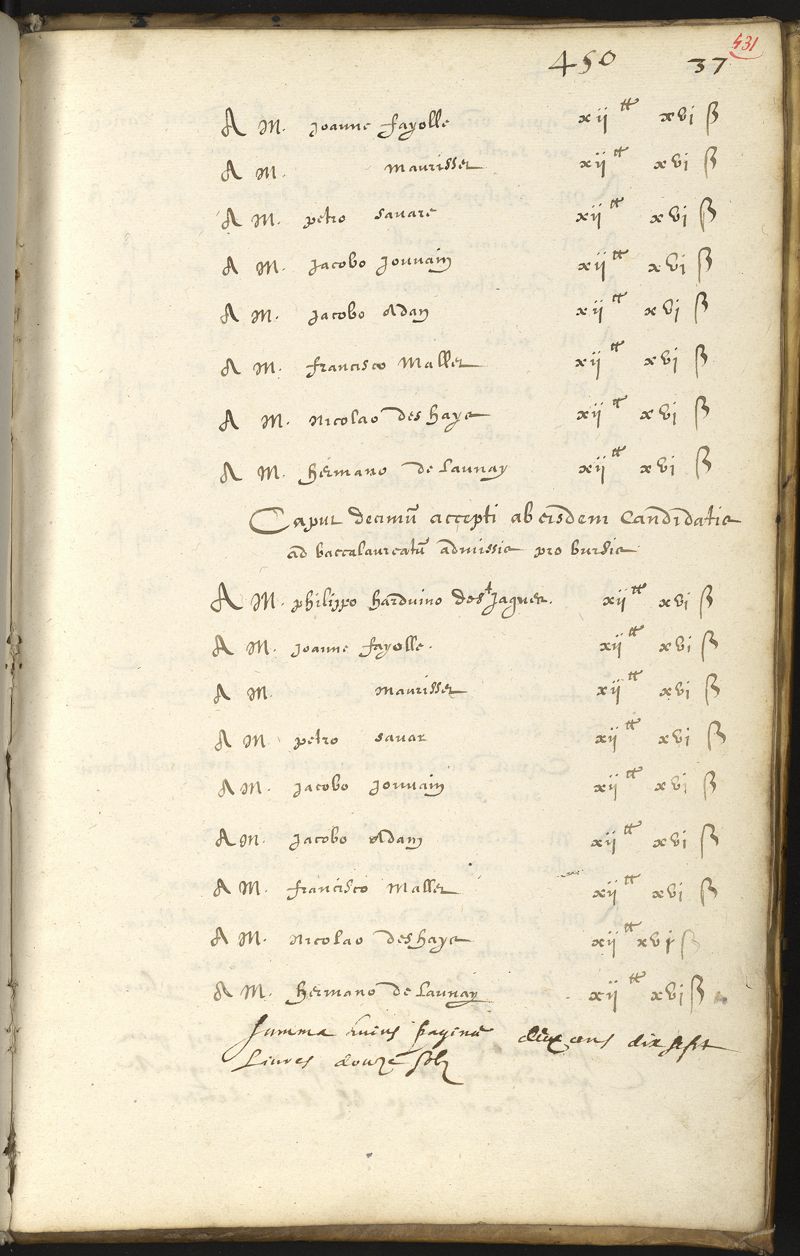 450 37 431
A M. Joanne fayolle xij tt xvi ß
A M. Maurisset xij tt xvi ß
A M. petro Savare xij tt xvi ß
A M. Jacobo Jouvain xij tt xvi ß
A M. Jacobo Adan xij tt xvi ß
A M. francisco Mallet xij tt xvi ß
A M. Nicolao deshaye xij tt xvi ß
A M. hermano de launay xij tt xvi ß
Caput decimū accepti ab eisdem Candidatis
ad baccalaureatū admissis pro bursis
A M. philippo harduino de St Jaques. xij tt xvi ß
A M. Joanne fayolle. xij tt xvi ß
A M. Maurisset xij tt xvi ß
A M petro Savar xij tt xvi ß
A M. Jacobo Jouvain xij tt xvi ß
A M. Jacobo Adan xij tt xvi ß
A M. francisco Mallet xij tt xvi ß
A M. Nicolao deshaye xij tt xvi ß
A M. hermano de launay xij tt xvi ß
Summa huius paginæ deux cens dix sept
Livres douze solz